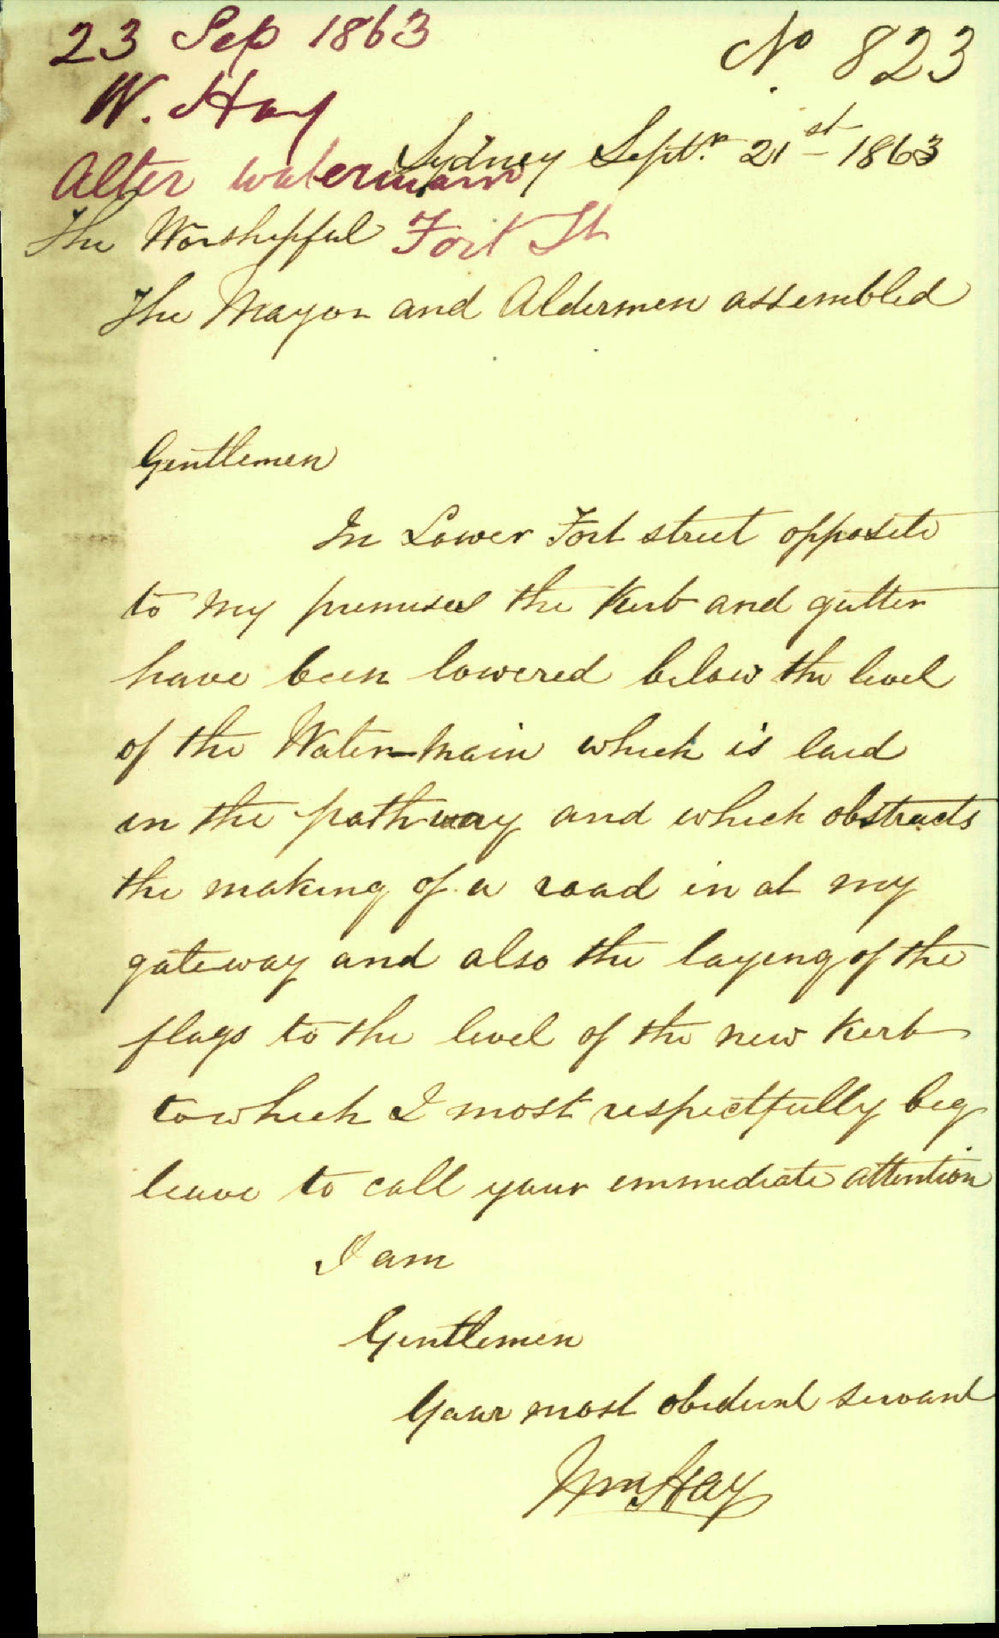 23 Sep 1863
No. 823
W. Hay
Sydney Septr. 21st 1863
Alter watermain
The Worshipful
Fort St
The Mayor and Aldermen assembled
Gentlemen
In Lower Fort street opposite
to my premises the Kerb and gutter
have been lowered below the level
of the Water-Main which is laid
in the pathway and which obstructs
the making of a road in at my
gateway and also the laying of the
flags to the level of the new Kerb
to which I most respectfully beg
leave to call your immediate attention
I am
Gentlemen
Your most obedient servant
Wm Hay